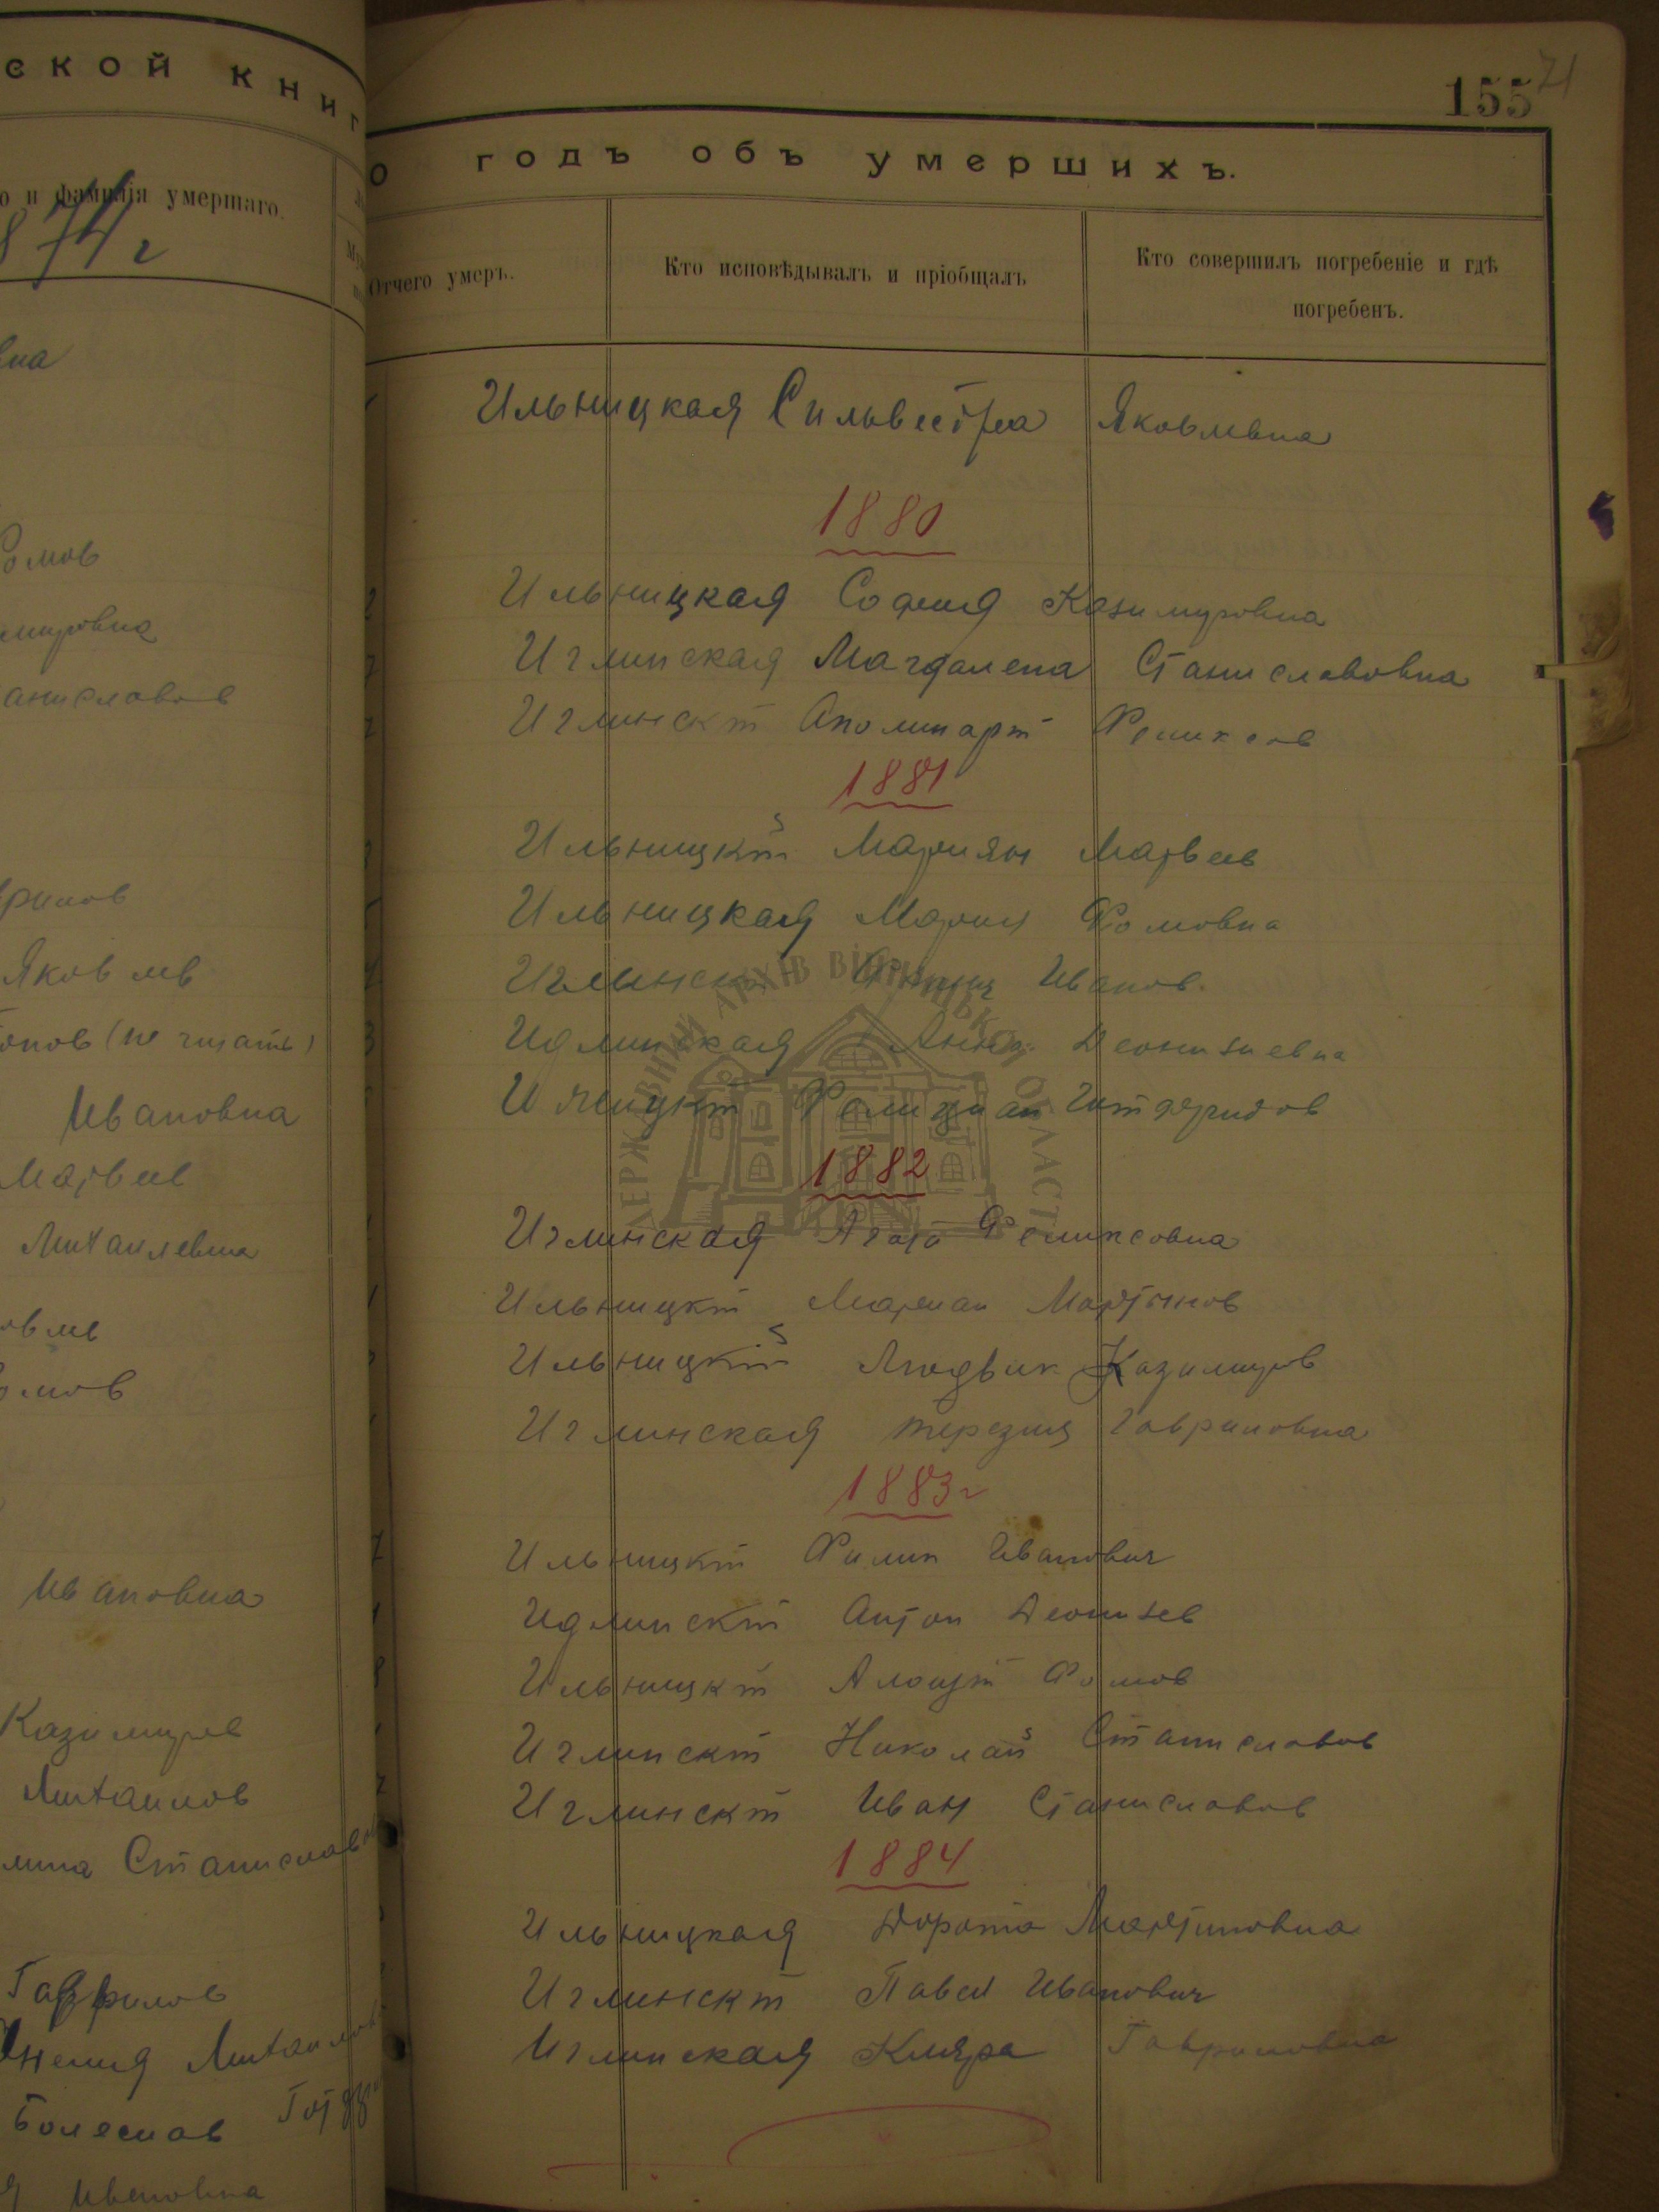 ской книг
о и фамилія умершаго.
874 г
вна
Фомов
мировна
аниславов
врилов
Яковлев
(не читать)
Ивановна
Матвеев
Михайлевна
овлев
омов
Ивановна
Казимиров
Михайлов
лина Станислав
Гаврилов
Михайлов
Болеслав
Ивановна
155 71
о годъ объ умершихъ.
Отчего умеръ.
Кто исповѣдывалъ и пріобщалъ
Кто совершилъ погребеніе и гдѣ
погребенъ.
Ильницкая Сильвестра Яковлевна
1880
Ильницкая София Казимировна
Иглинская Магдалена Станиславовна
Иглинскій Аполинарій Феликсов
1881
Ильницкій Мариян Матвеев
Ильницкая Мария Фомовна
Иглински Иванов.
Идлинская Анна Деонизиевна
Фелициан Готфридов
1882
Иглинская Агата Феликсовна
Ильницкій Мариан Мартынов
Ильницкій Людвик Казимиров
Иглинская Терезия Гавриловна
1883 г
Ильницкій Филип Иванович
Идлинскій Антон Деонизев
Ильницкій Алоизій Фомов
Иглинскій Николай Станиславов
Иглинскій Иван Станиславов
1884
Ильницкая Дорота Мартиновна
Иглинскій Павел Иванович
Иглинская Кляра Гавриловна
ДЕРЖАВНИЙ АРХІВ ВІННИЦЬКОЇ ОБЛАСТІ